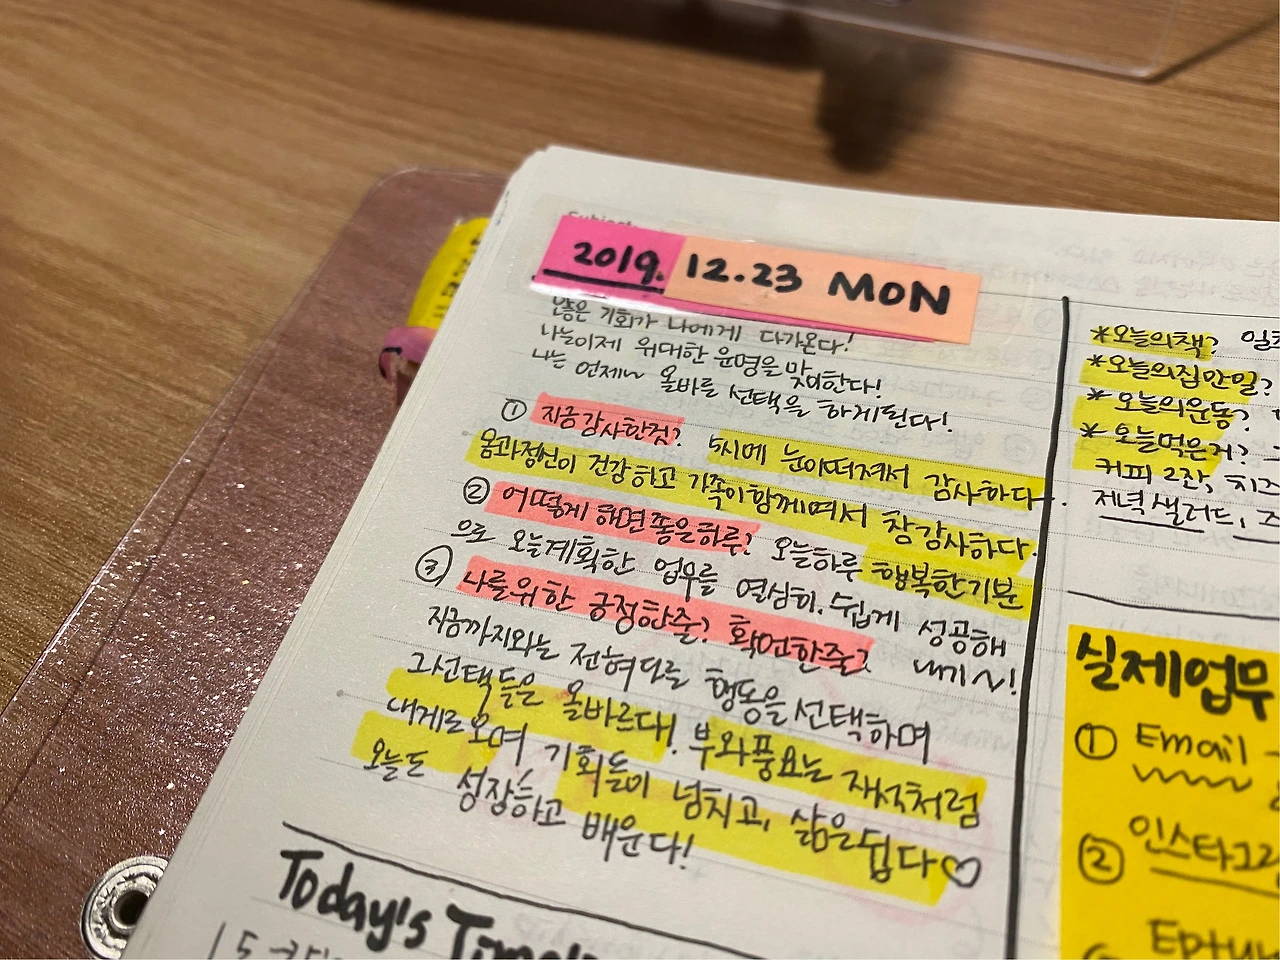 2019. 12.23 MON
많은 기회가 나에게 다가온다!
나는이제 위대한 운명을 맞이한다!
나는 언제나 올바를 선택을 하게된다!
① 지금감사한것? 5시에 눈이떠져서 감사하다.
몸과정신이 건강하고 가족이함께여서 참감사하다.
② 어떻게 해면좋을하루? 오늘하루 행복한기분
으로 오늘계획한 업무를 열심히. 쉽게 성공해
내기~!
③ 나를위한 긍정한줄? 확언한줄?
지금까지와는 전혀다를 행동을선택하며
그선택들은 올바르다! 부와풍요는 자석처럼
내게로오며 기회들이 넘치고, 삶은쉽다♡
오늘도 성장하고 배운다!
Today's
*오늘의책?
*오늘의집안일?
*오늘의운동?
*오늘먹은거?
커피 2잔, 치즈
저녁샐러드,
실제업무
① Email
② 인스타그